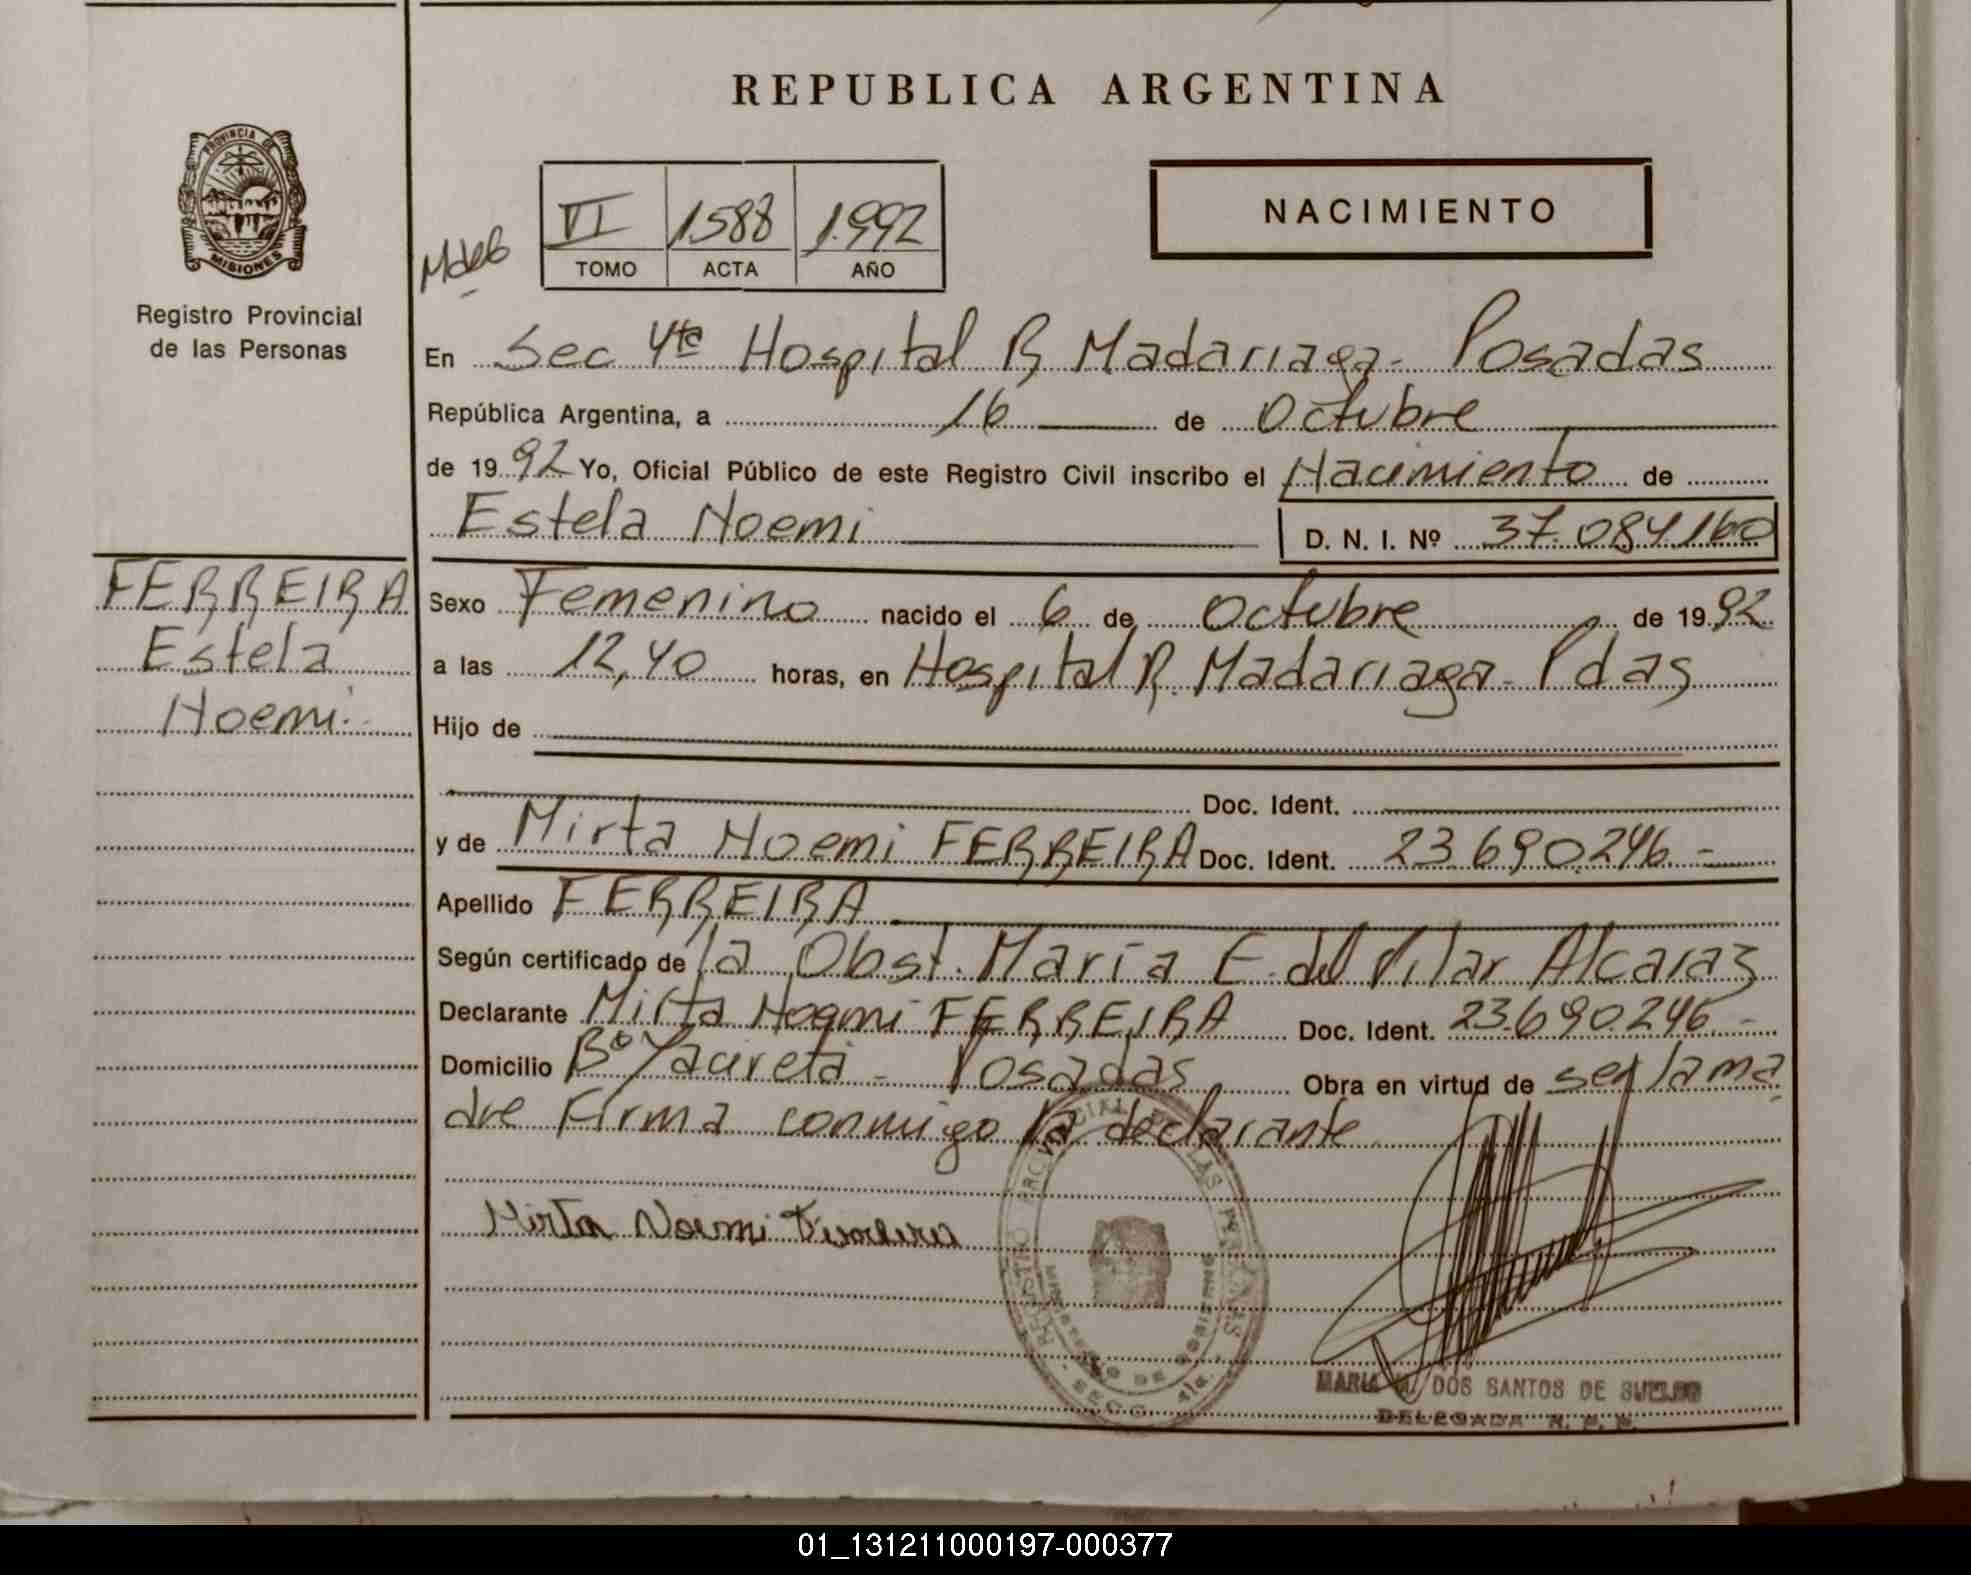 REPUBLICA ARGENTINA
PROVINCIA DE
MISIONES
Registro Provincial
de las Personas
VI 1588 1.992
TOMO ACTA AÑO
NACIMIENTO
En Sec 4ta Hospital R Madariaga - Posadas
República Argentina, a 16 de Octubre
de 1992 Yo, Oficial Público de este Registro Civil inscribo el Nacimiento de
Estela Noemi D. N. I. Nº 37.084160
FERREIRA
Estela
Noemi
Sexo Femenino nacido el 6 de Octubre de 1992
a las 12,40 horas, en Hospital R. Madariaga - Pdas
Hijo de
Doc. Ident.
y de Mirta Noemi FERREIRA Doc. Ident. 23.690.246 -
Apellido FERREIRA
Según certificado de la Obst. María E. del Pilar Alcaraz
Declarante Mirta Noemi FERREIRA Doc. Ident. 23.690.246 -
Domicilio Bº Yacireta - Posadas Obra en virtud de ser la ma
dre Firma conmigo la declarante
Mirta Noemi Ferreira
MARIA DOS SANTOS DE
DELEGADA R. P. P.
01_131211000197-000377